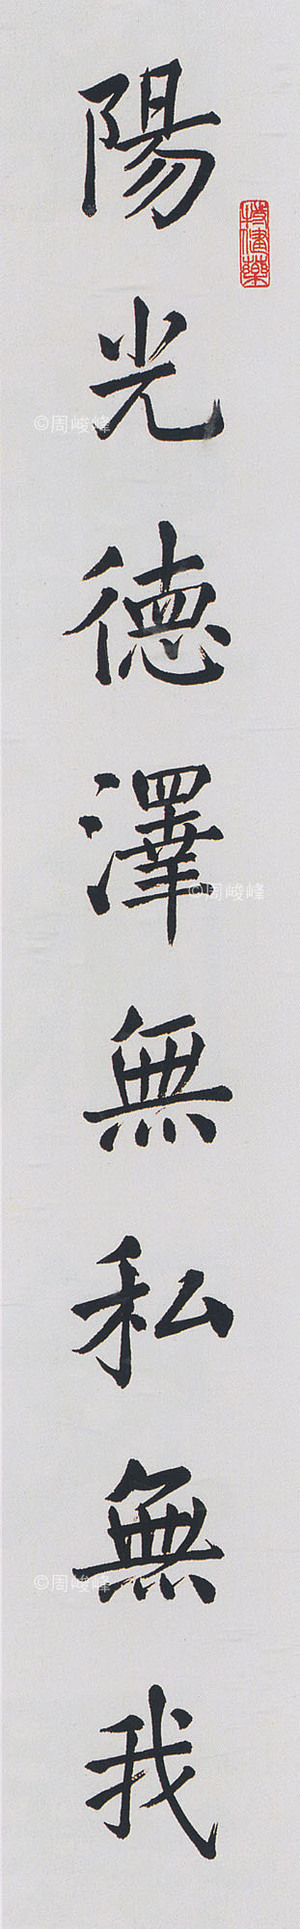 陽光德澤無私無我
©周峻峰
©周峻峰
©周峻峰